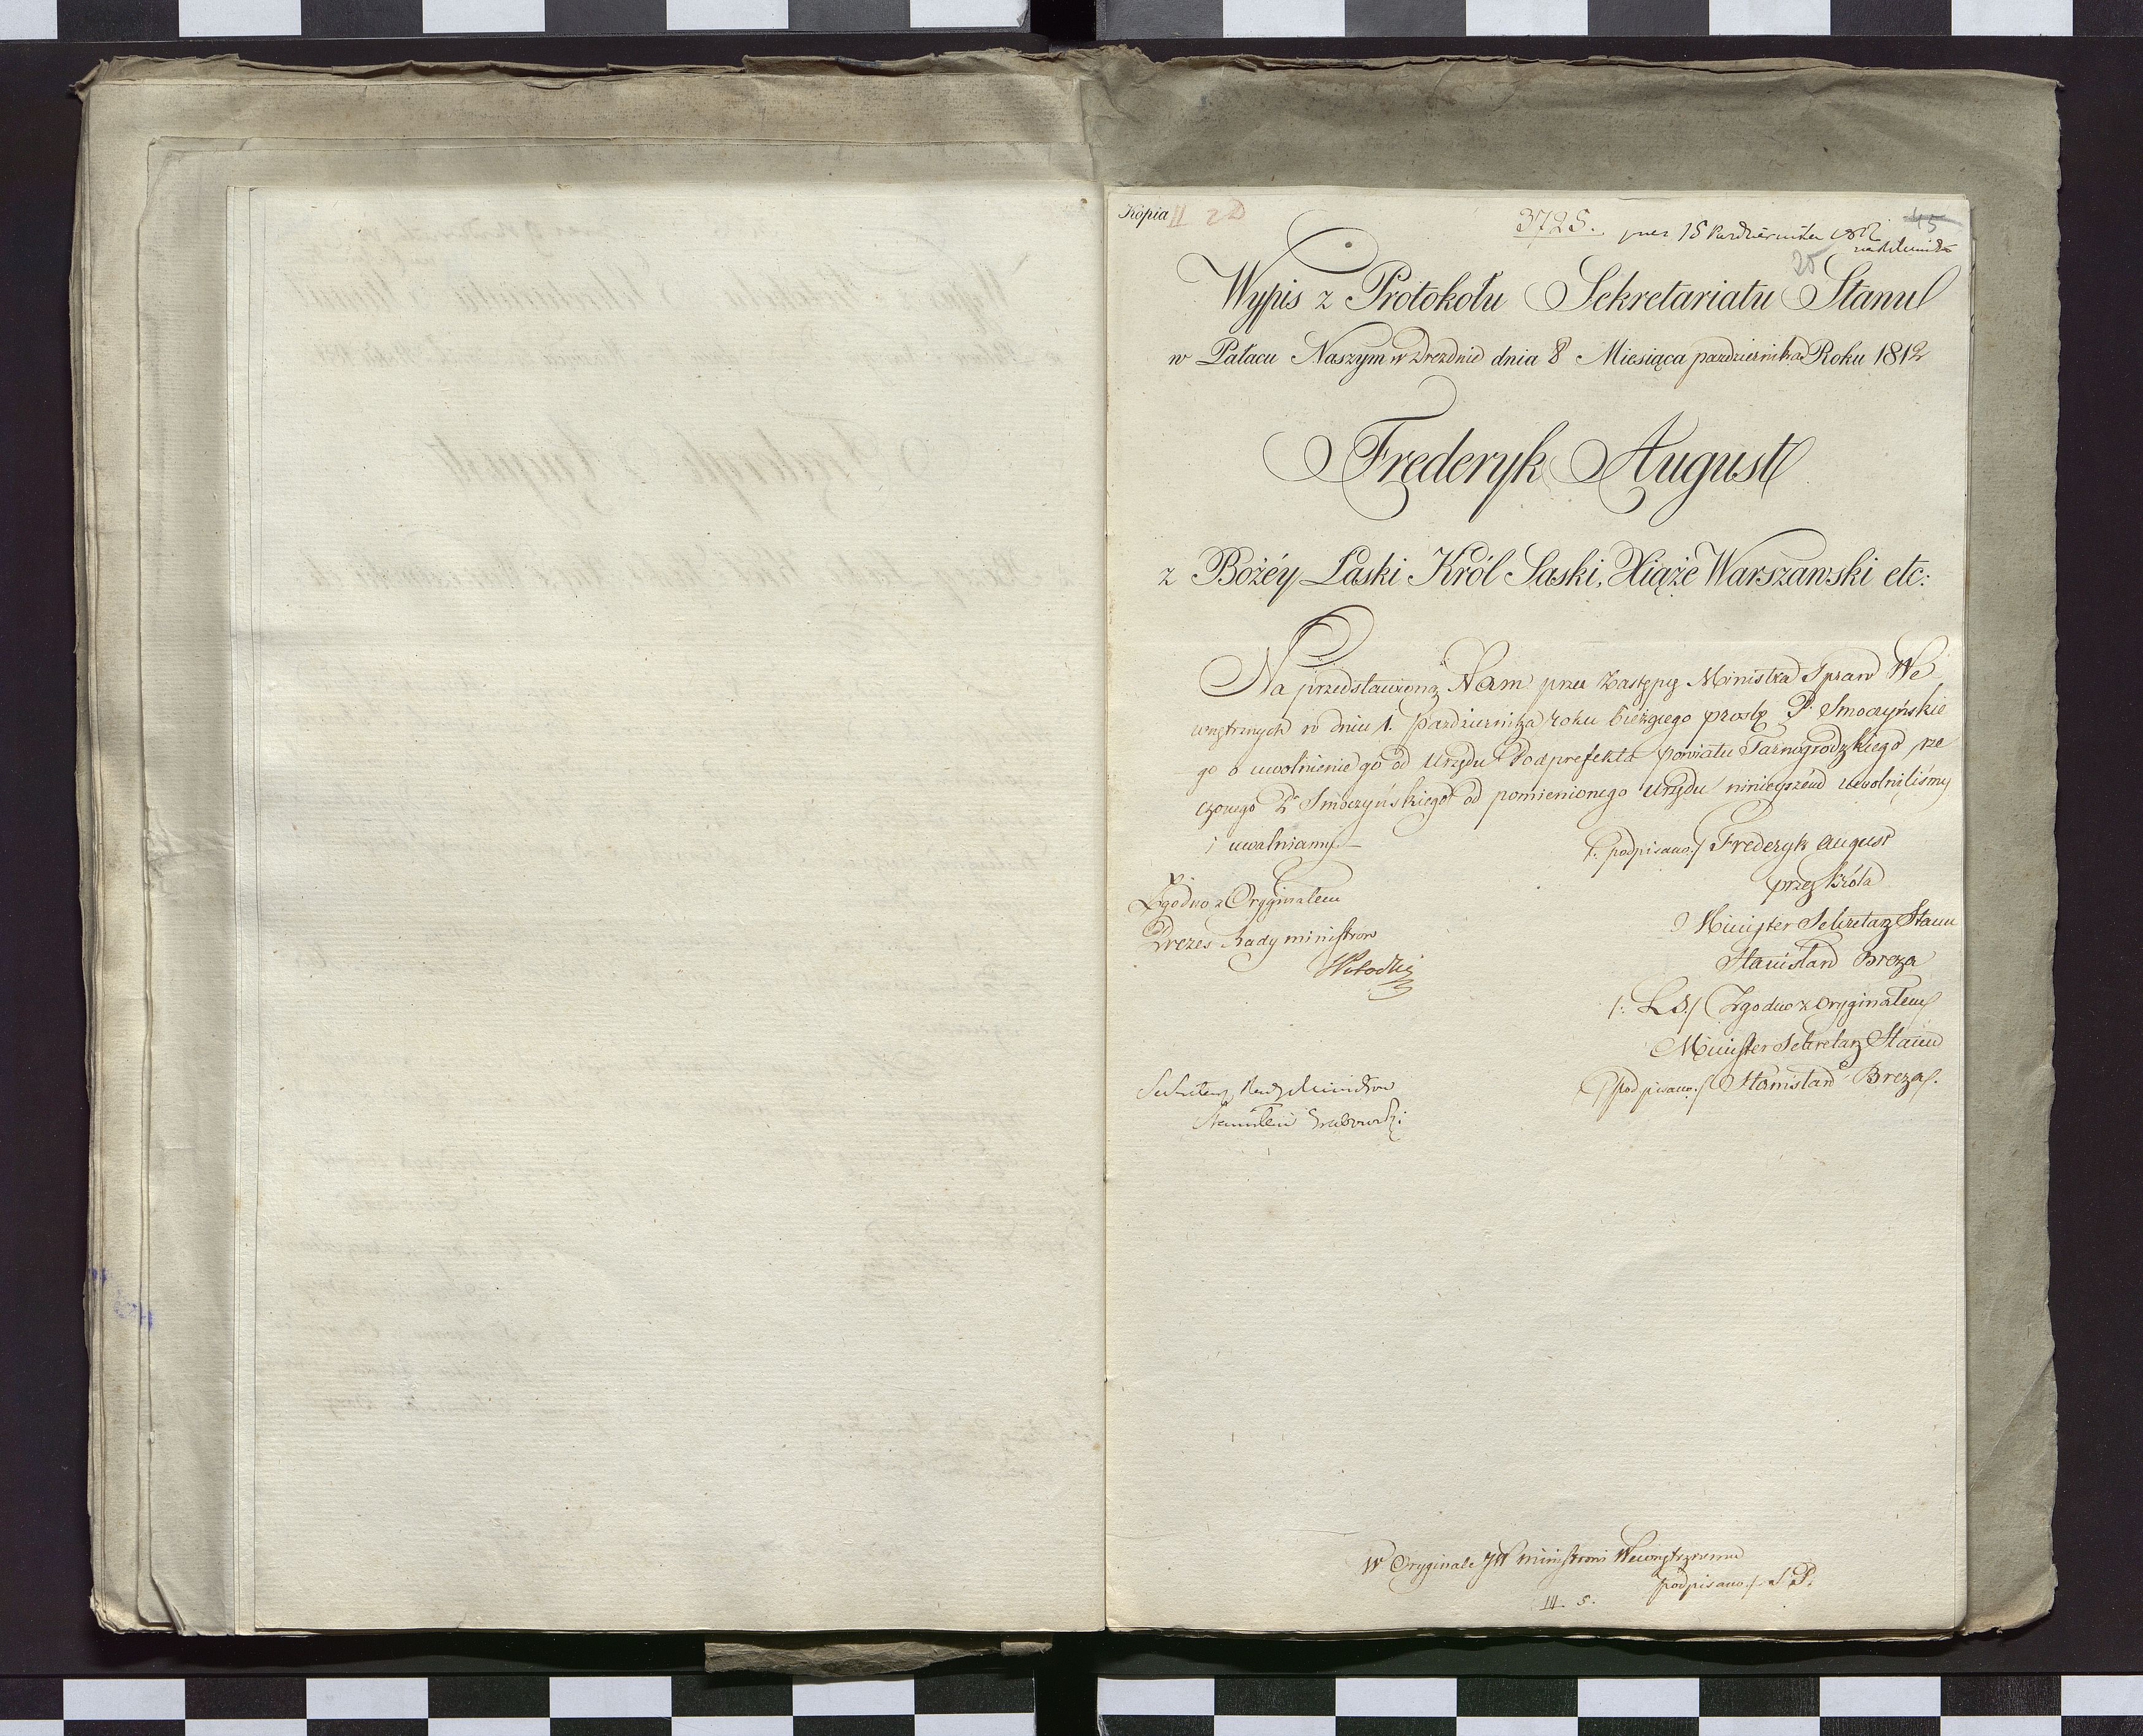 Kopia II 2D
3725. prez 15 Października 1812
45
25
Wypis z Protokołu Sekretariatu Stanu
w Pałacu Naszym w Dreznie dnia 8 Miesiąca pazdziernika Roku 1812
Frederyk August
z Bożéy Łaski Król Saski, Xiąże Warszawski etc:
Na przedstawioną Nam przez Zastępcę Ministra Spraw We
wnętrznych w dniu 1. pazdziernika roku bieżącego prosbę P. Smoczyńskie
go o uwolnienie go od Urzędu Podprefekta powiatu Tarnogrodzkiego rze
czonego Pa Smoczyńskiego od pomienionego Urzędu ninieyszém uwolniliśmy
i uwalniamy.
/: podpisano :/ Frederyk August
przez Króla
Minister Sekretarz Stanu
Stanisław Breza
/: L.S. :/ Zgodno z Oryginałem
Minister Sekretarz Stanu
/: podpisano :/ Stanisław Breza.
Zgodno z Oryginałem
Prezes Rady ministrow
Sekretarz Rady Ministrow
Stanisław Grabowski
W Oryginale JW Ministrowi Wewnętrznemu
podpisano :/ S. P.
III. 5.